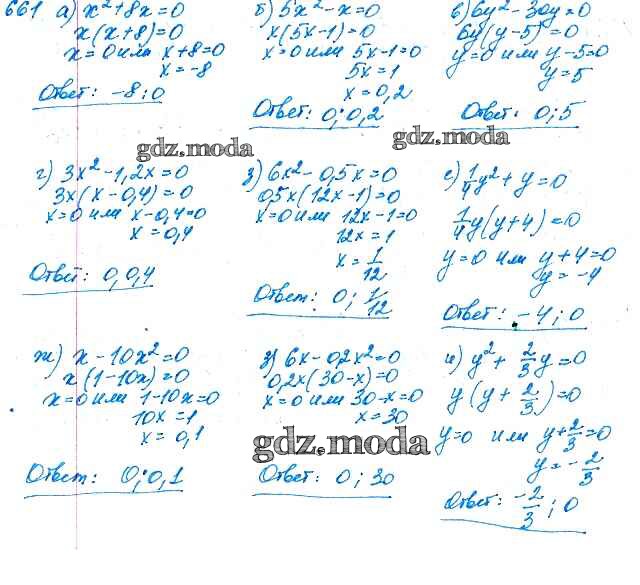 661 а) x²+8x=0
x(x+8)=0
x=0 или x+8=0
x=-8
Ответ: -8; 0
б) 5x²-x=0
x(5x-1)=0
x=0 или 5x-1=0
5x=1
x=0,2
Ответ: 0; 0,2
в) 6y²-30y=0
6y(y-5)=0
y=0 или y-5=0
y=5
Ответ: 0; 5
gdz.moda
gdz.moda
г) 3x²-1,2x=0
3x(x-0,4)=0
x=0 или x-0,4=0
x=0,4
Ответ: 0, 0,4
д) 6x²-0,5x=0
0,5x(12x-1)=0
x=0 или 12x-1=0
12x=1
x=1/12
Ответ: 0; 1/12
е) 1/4y²+y=0
1/4y(y+4)=0
y=0 или y+4=0
y=-4
Ответ: -4; 0
ж) x-10x²=0
x(1-10x)=0
x=0 или 1-10x=0
10x=1
x=0,1
Ответ: 0; 0,1
з) 6x-0,2x²=0
0,2x(30-x)=0
x=0 или 30-x=0
x=30
gdz.moda
Ответ: 0; 30
и) y²+2/3y=0
y(y+2/3)=0
y=0 или y+2/3=0
y=-2/3
Ответ: -2/3; 0